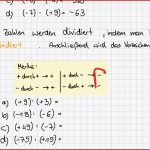 d) (-7) · (+9) = -63
Zahlen werden dividiert, indem man
dividiert. Anschließend wird das Vorzeichen
Merke:
+ durch + → + + durch - → -
- durch - → + - durch + → -
a) (+9) : (+3) =
b) (-18) : (-9) =
c) (+49) : (-7) =
d) (-75) : (+15) =